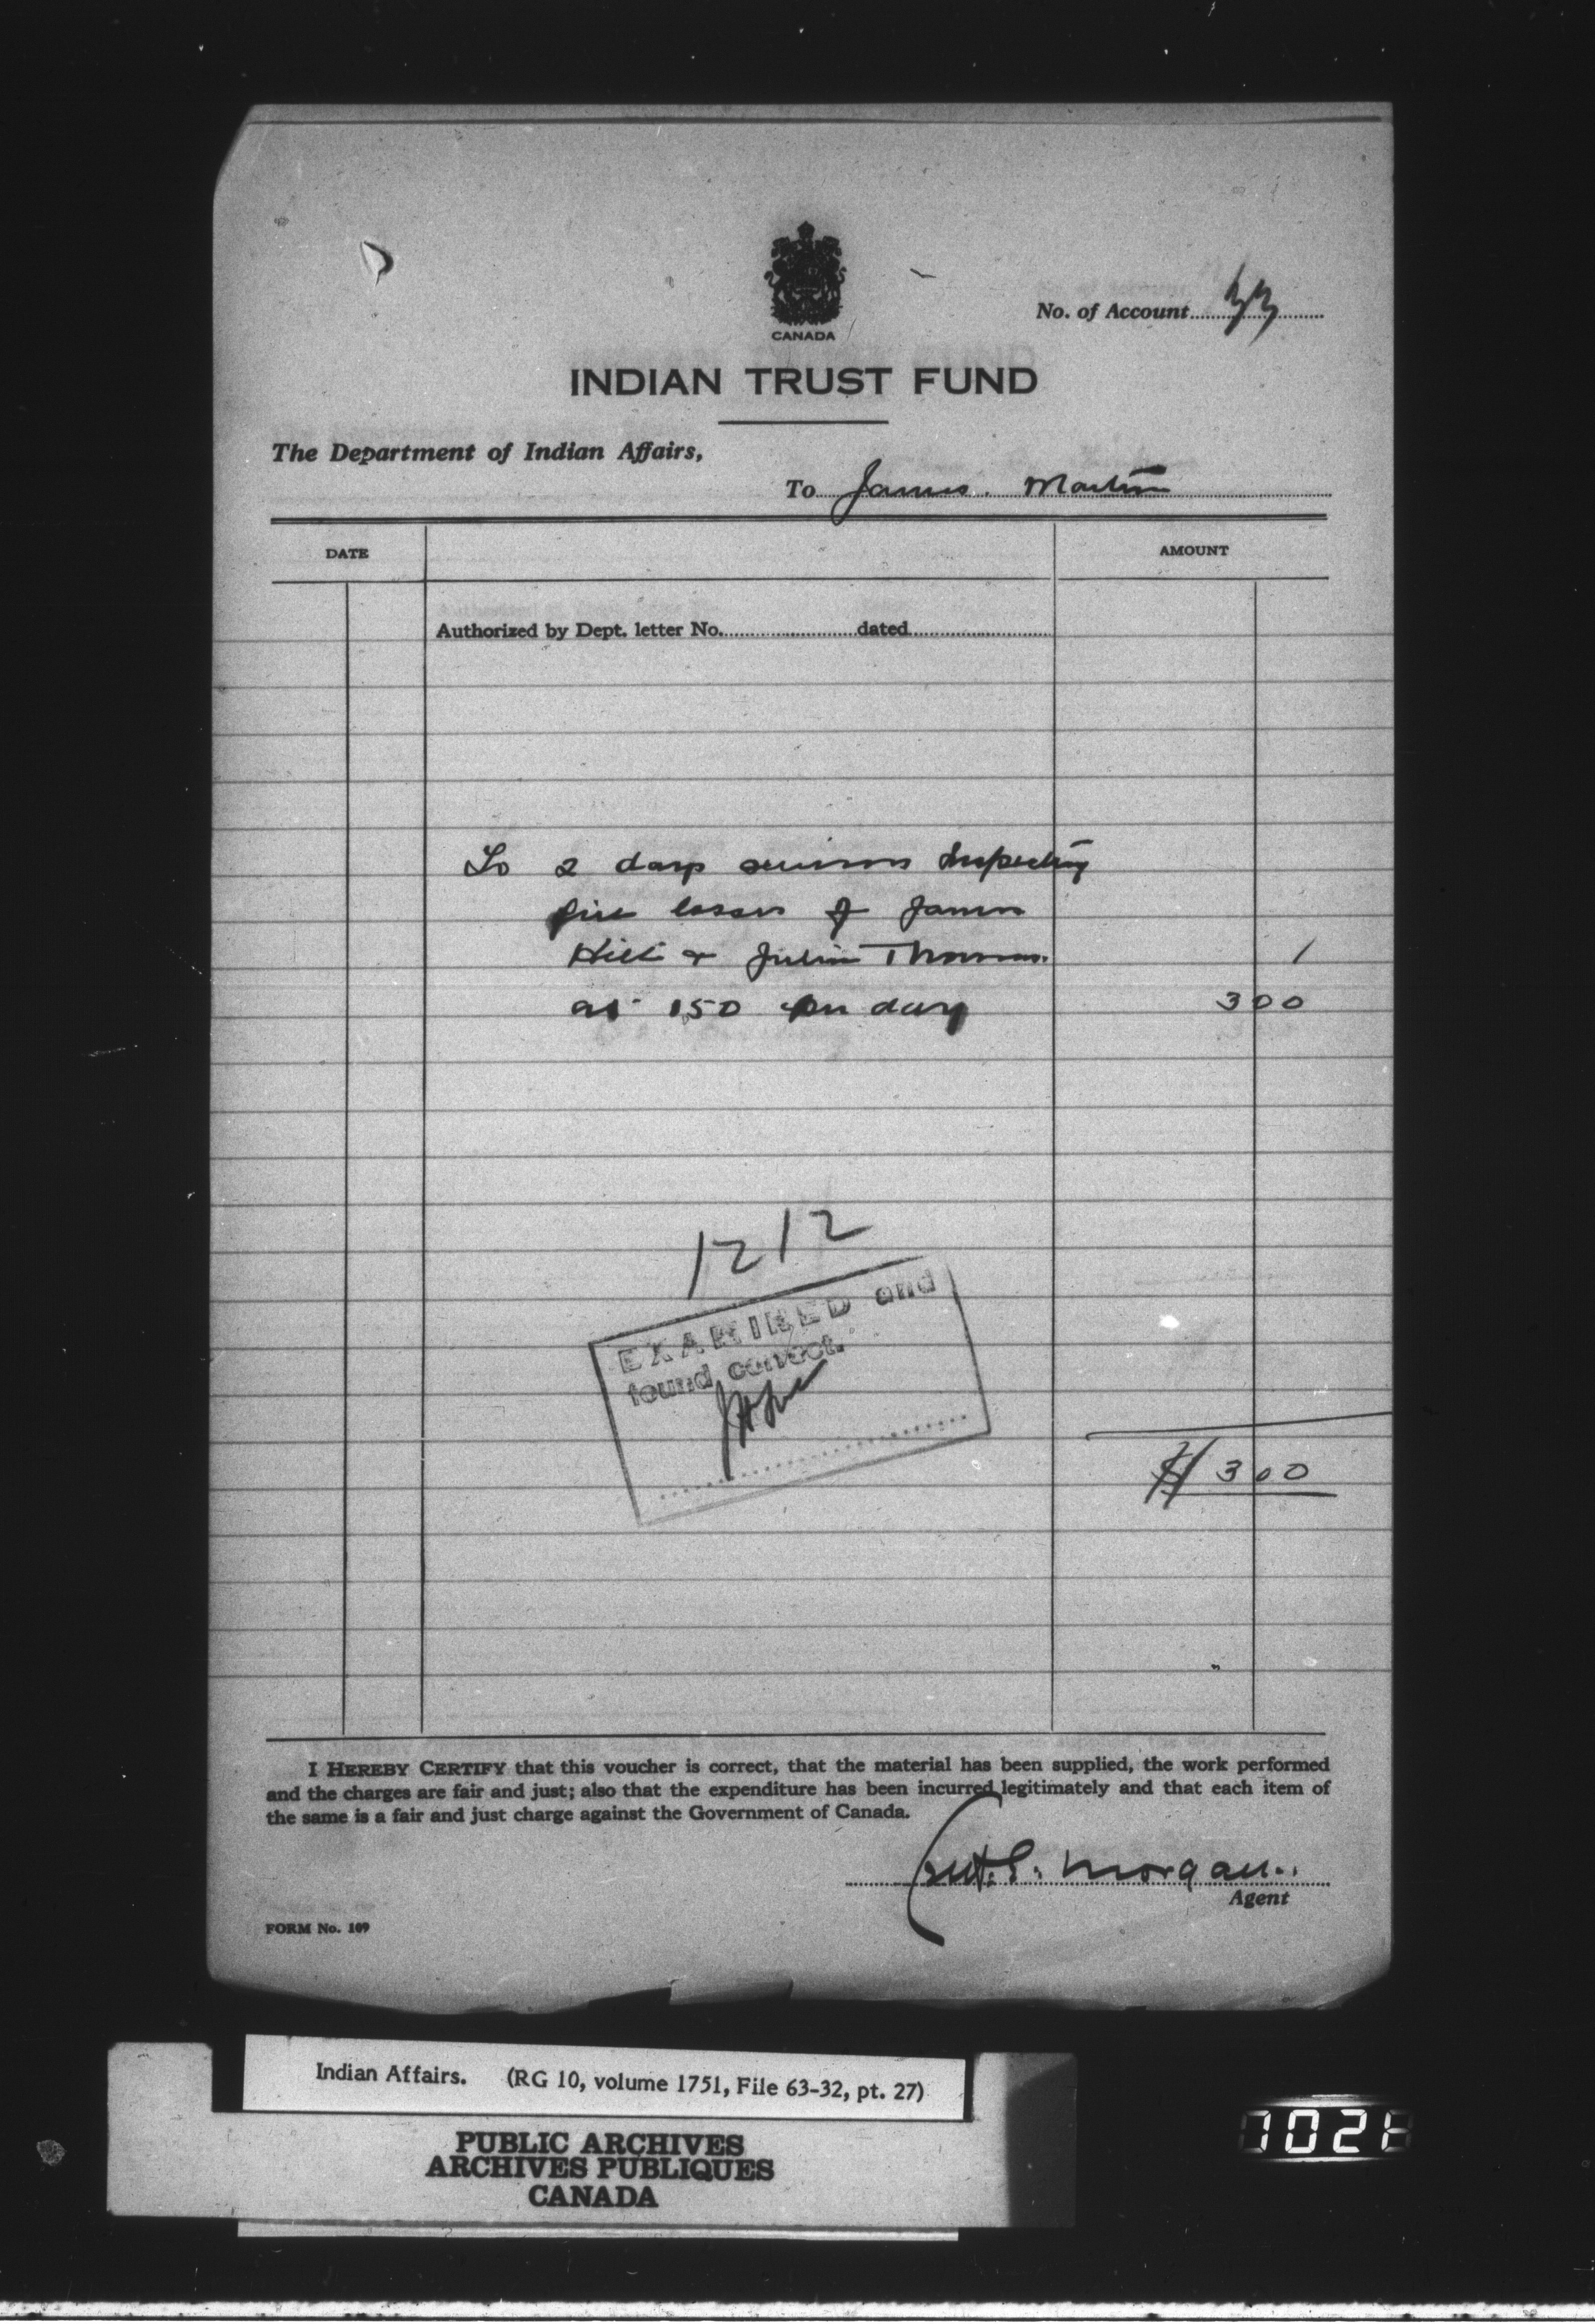 CANADA
No. of Account 33
INDIAN TRUST FUND
The Department of Indian Affairs,
To James. Martin
DATE
AMOUNT
Authorized by Dept. letter No. dated
To 2 days services Inspecting
fire losses of James
Hill & Julia Thomas.
at 150 per day 3 00
1212
EXAMINED and
found correct.
$ 3 00
I HEREBY CERTIFY that this voucher is correct, that the material has been supplied, the work performed
and the charges are fair and just; also that the expenditure has been incurred legitimately and that each item of
the same is a fair and just charge against the Government of Canada.
Morgan
Agent
FORM No. 109
Indian Affairs. (RG 10, volume 1751, File 63-32, pt. 27)
PUBLIC ARCHIVES
ARCHIVES PUBLIQUES
CANADA